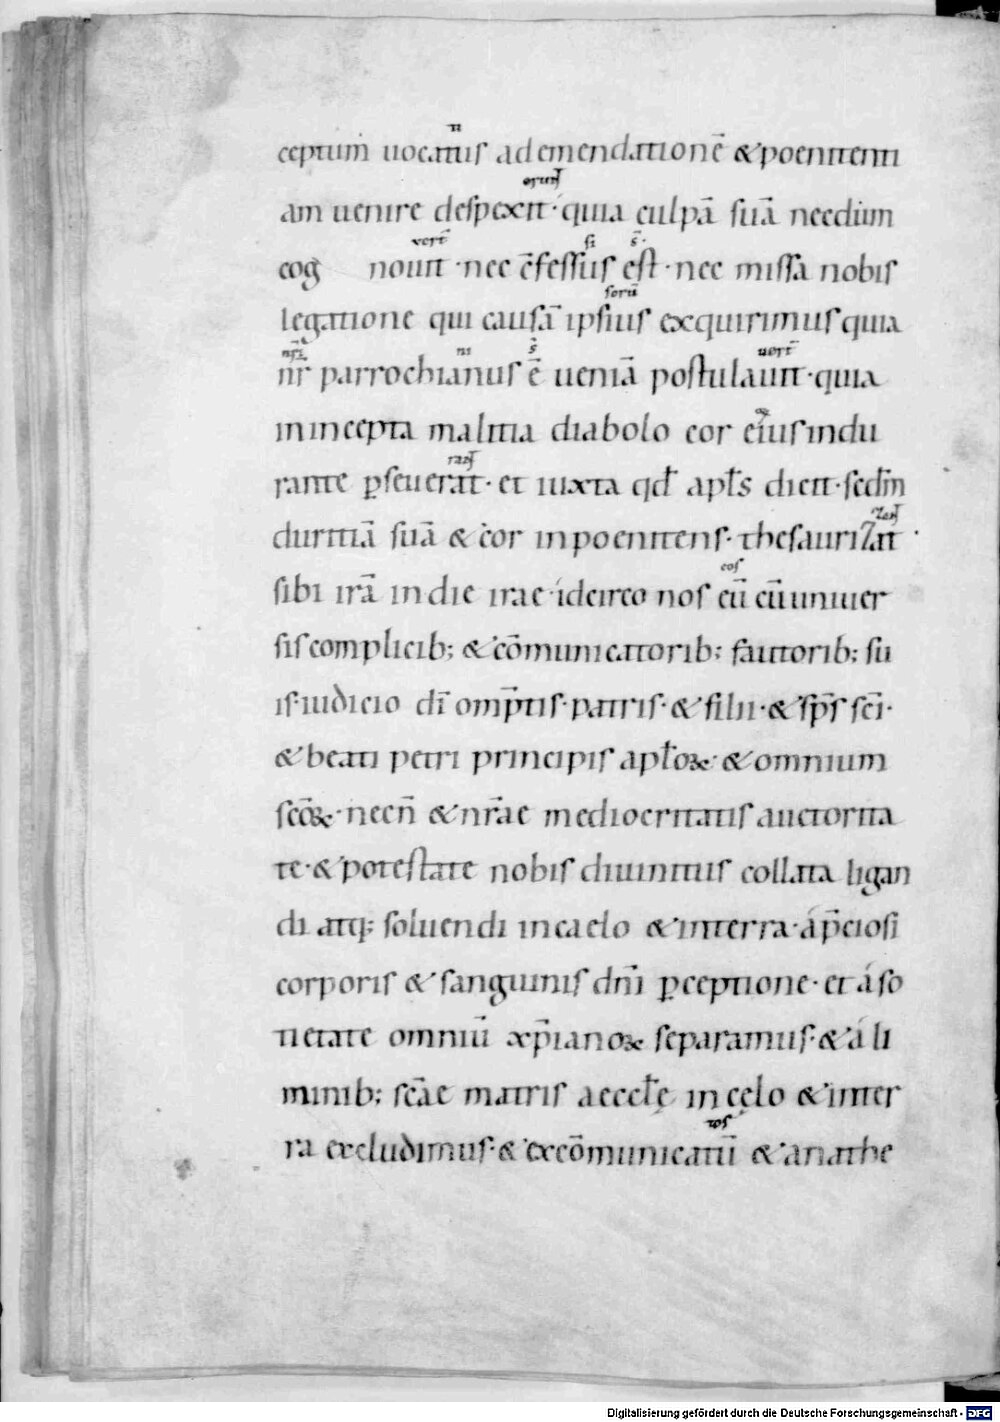 ti
ceptum uocatus ad emendationē & poenitenti
erunt
am uenire despexit · quia culpā suā nec dum
uerī si s̄·
cog nouit · nec c̄fessus est · nec missa nobis
sorū
legatione qui causā ipsius exquirimus quia
nr̄i ni s̄ uerī
nr̄ parrochianus ē ueniā postulauit · quia
in incepta malitia diabolo cor eius indu
rant
rante ꝑseuerat · et iuxta qd̄ apl̄s dicit · scdm̄
zant
duritiā suā & cor inpoenitens · thesaurizat ·
cos
sibi irā in die irae · idcirco nos eū cū uniuer
sis complicib; & cōmunicatorib; fautorib; su
is · iudicio dī omp̄tis · patris · & filii · & sp̄s sc̄i ·
& beati petri principis apl̄oꝝ · & omnium
sc̄oꝝ · necn̄ & nr̄ae mediocritatis auctorita
te · & potestate nobis diuinitus collata ligan
di atq; soluendi in caelo & in terra · á p̄ciosi
corporis & sanguinis dn̄i ꝑceptione · et á so
tietate omniū xp̄ianoꝝ separamus · & á li
minib; sc̄ae matris aeccl̄ę in cęlo & in ter
tos
ra excludimus · & excōmunicatū & anathe
Digitalisierung gefördert durch die Deutsche Forschungsgemeinschaft - DFG